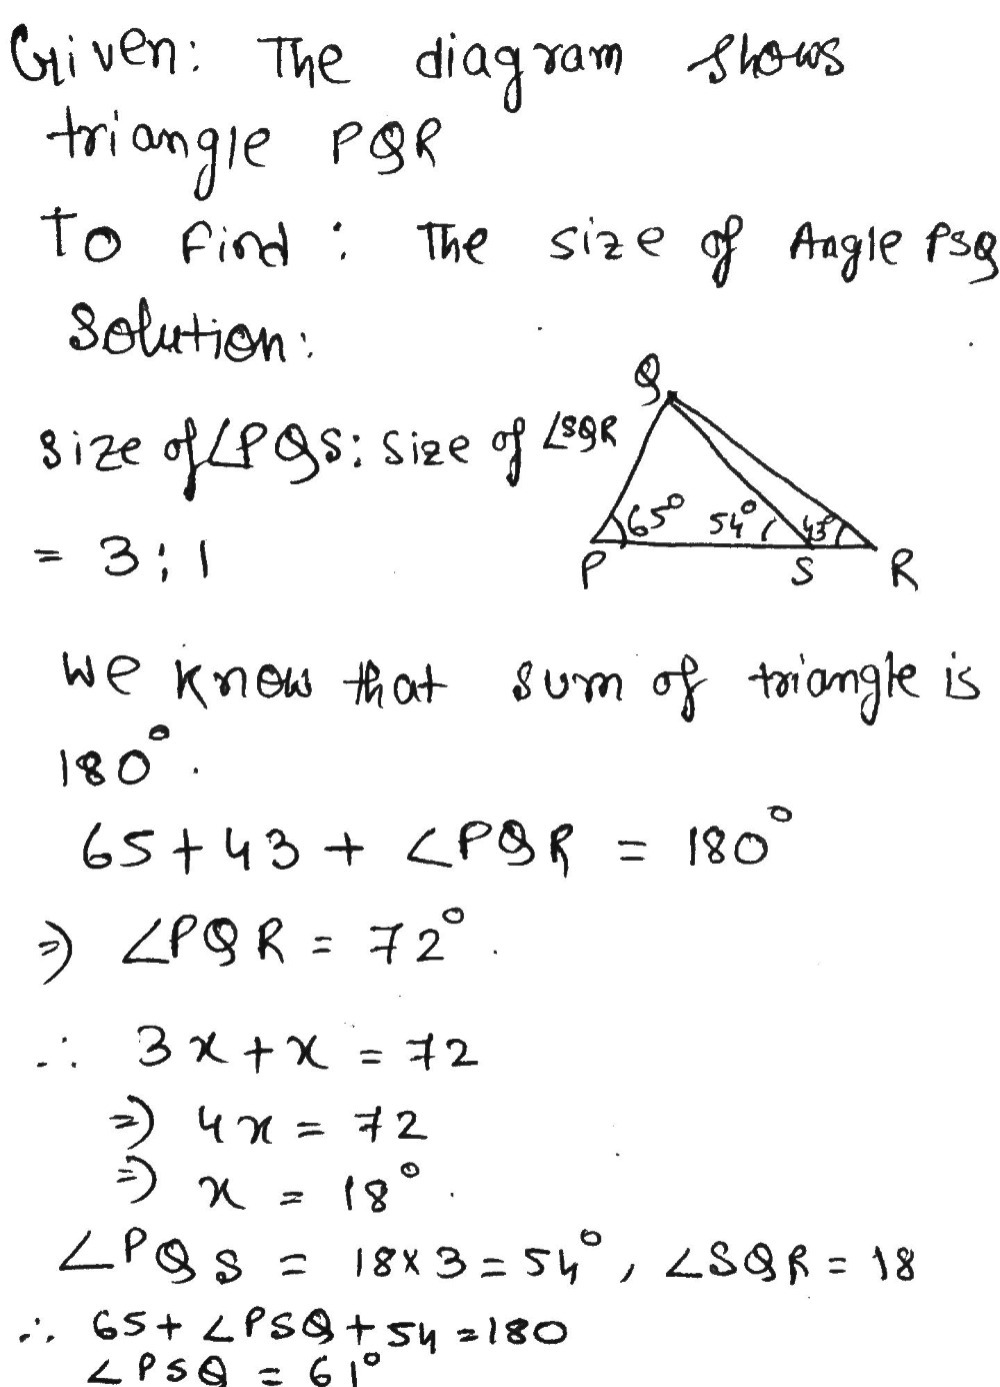 Given: The diagram shows
triangle PQR
To find: The size of Angle PSQ
Solution:
Size of ∠PQS: Size of ∠SQR
= 3:1
Q
65° 54° 43°
P S R
We know that sum of triangle is
180°.
65+43+ ∠PQR = 180°
⇒ ∠PQR = 72°.
∴ 3x+x = 72
⇒ 4x = 72
⇒ x = 18°.
∠PQS = 18×3=54°, ∠SQR=18
∴ 65+∠PSQ+54=180
∠PSQ = 61°